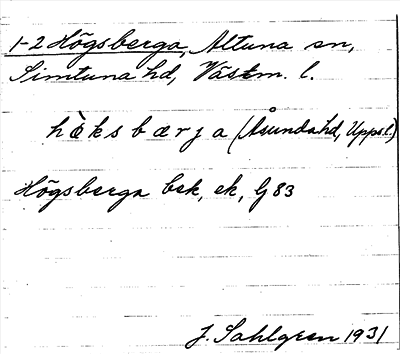 1-2 Högsberga, Altuna sn,
Simtuna hd, Västm. l.
hö̀ksbærja (Åsunda hd, Uppsl.)
Högsberga bek, ek, G 83
J. Sahlgren 1931